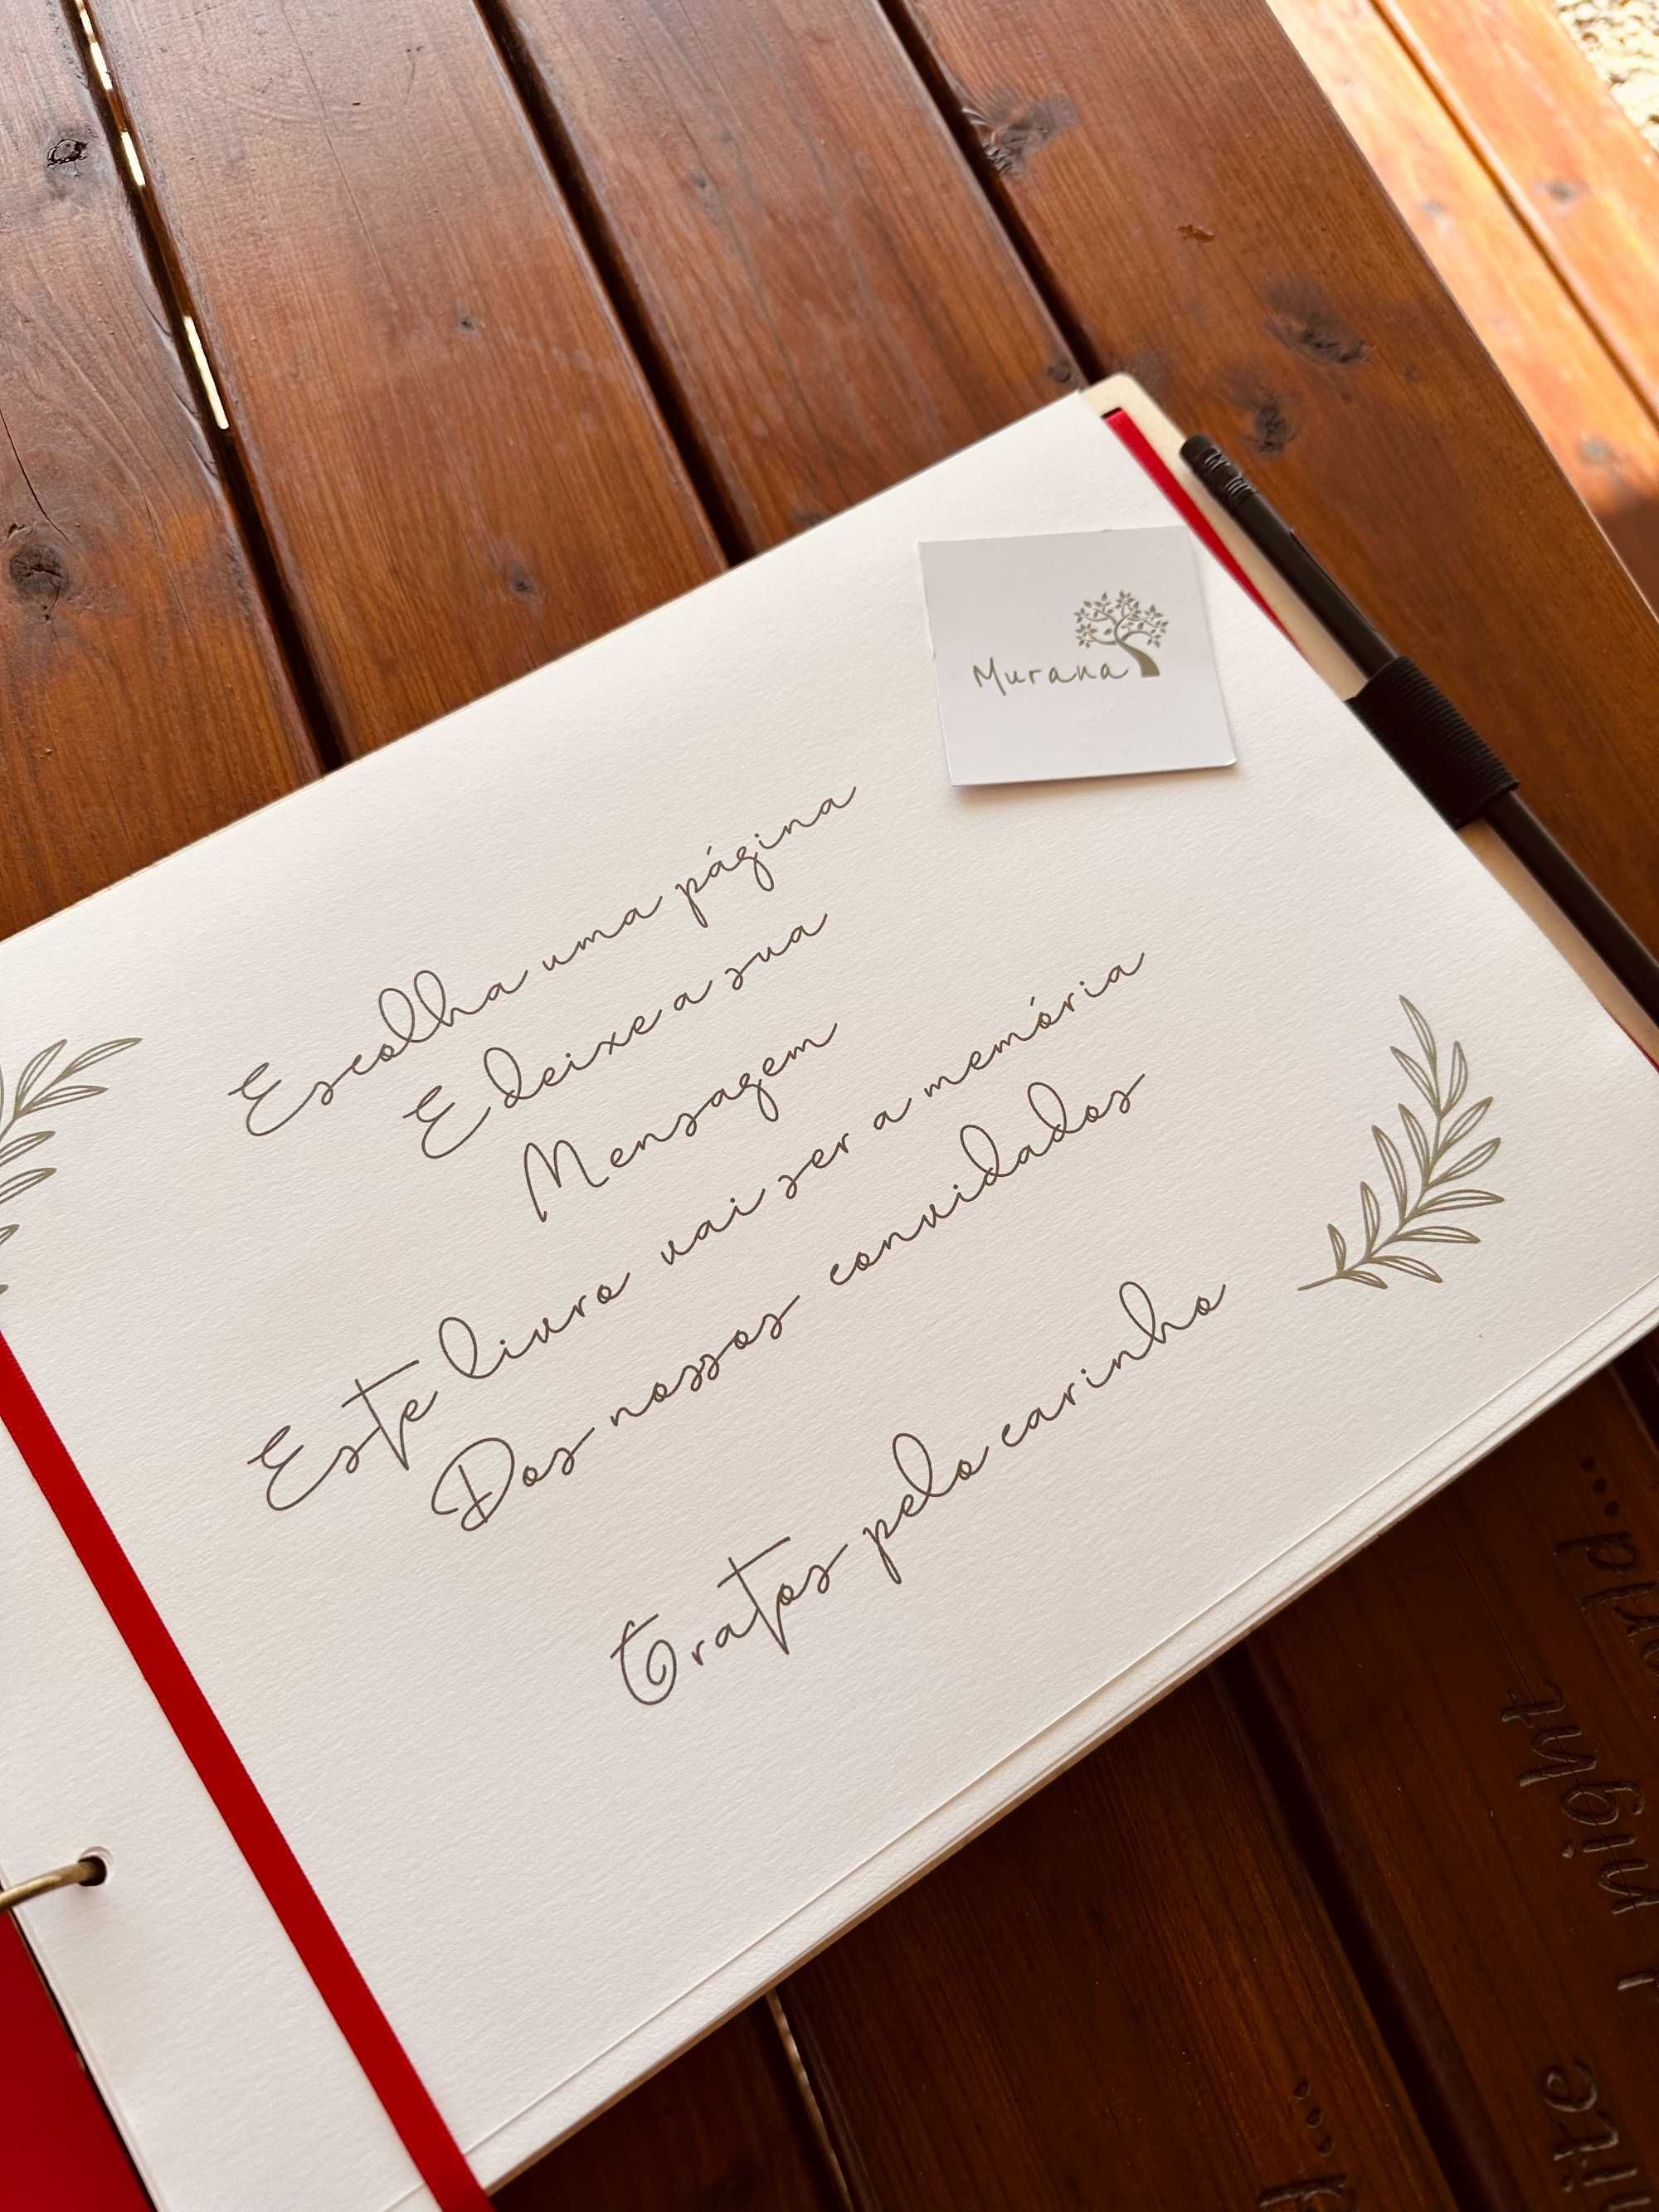 Murana
Escolha uma página
E deixe a sua
Mensagem
Este livro vai ser a memória
Dos nossos convidados
Gratos pelo carinho
night